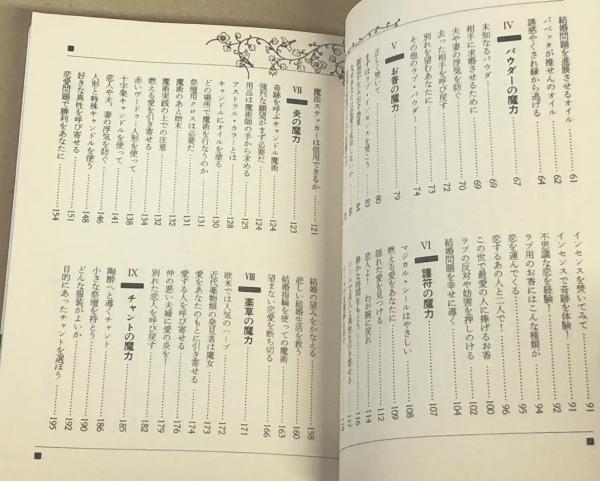 結婚問題を進展させるオイル……61
パペッタが推せんのオイル……62
誘惑やくされ縁から逃げる……64
Ⅳ パウダーの魔力……67
未知なるパウダー……69
相手に求婚させるために……69
夫や妻の浮気を防ぐ……70
去った相手を呼び戻す……72
別れを望むあなたに……73
その他のラブ・パウダー……74
Ⅴ お香の魔力……79
正しく焚いて……80
まずはラブ・インセンスを焚こう……84
インセンスを焚いてみて……91
インセンスで奇跡を体験!……91
不思議な恋を経験!……92
ラブ用のお香にはこんな種類が……94
恋を運んでくる……95
恋するあの人と二人で!……96
この世で最愛の人に捧げるお香……100
ラブの反対や妨害を押しのける……102
結婚問題を幸せに導く……104
Ⅵ 護符の魔力……107
マジカル・シールはやさしい……109
燃える愛をあなたに……112
隠れた愛を見つける……114
恋人よ! わが腕に戻れ……116
静かな時間をもとう……
魔法ステッカーは信用できるか……121
Ⅶ 炎の魔力……123
奇跡を呼ぶキャンドル魔術……124
強烈な願望がまず必要だ……124
用品は魔術師の手から求める……125
アストラル・カラーとは……128
キャンドルにオイルを塗る……130
どの場所で魔術を行なうのか……130
祭壇用クロスは必要だ……131
魔術のあと始末……131
魔術実践の上での注意……132
燃える愛を引き寄せる……134
赤いヴードゥー人形を使って……138
十字架キャンドルを使って……141
恋人や夫、妻の浮気を防ぐ……146
人形と特殊キャンドルを使う……148
好きな異性を呼び寄せる……151
恋愛問題で勝利をあなたに……154
結婚の望みをかなえる……158
悲しい結婚生活を救う……160
結婚指輪を使っての魔術……163
望まない恋愛を断ち切る……166
Ⅷ 薬草の魔力……171
欧米では人気のハーブ……172
近代薬物類の発見者は魔女……173
愛をあなたのもとに引き寄せる……174
愛する人を呼び寄せる……176
仲の悪い夫婦に愛の炎を!……179
別れた恋人を呼び戻す……182
Ⅸ チャントの魔力……185
陶酔へと導くチャント……186
小さな祭壇を持とう……190
どんな服装がよいか……192
目的にあったチャントを選ぼう……195